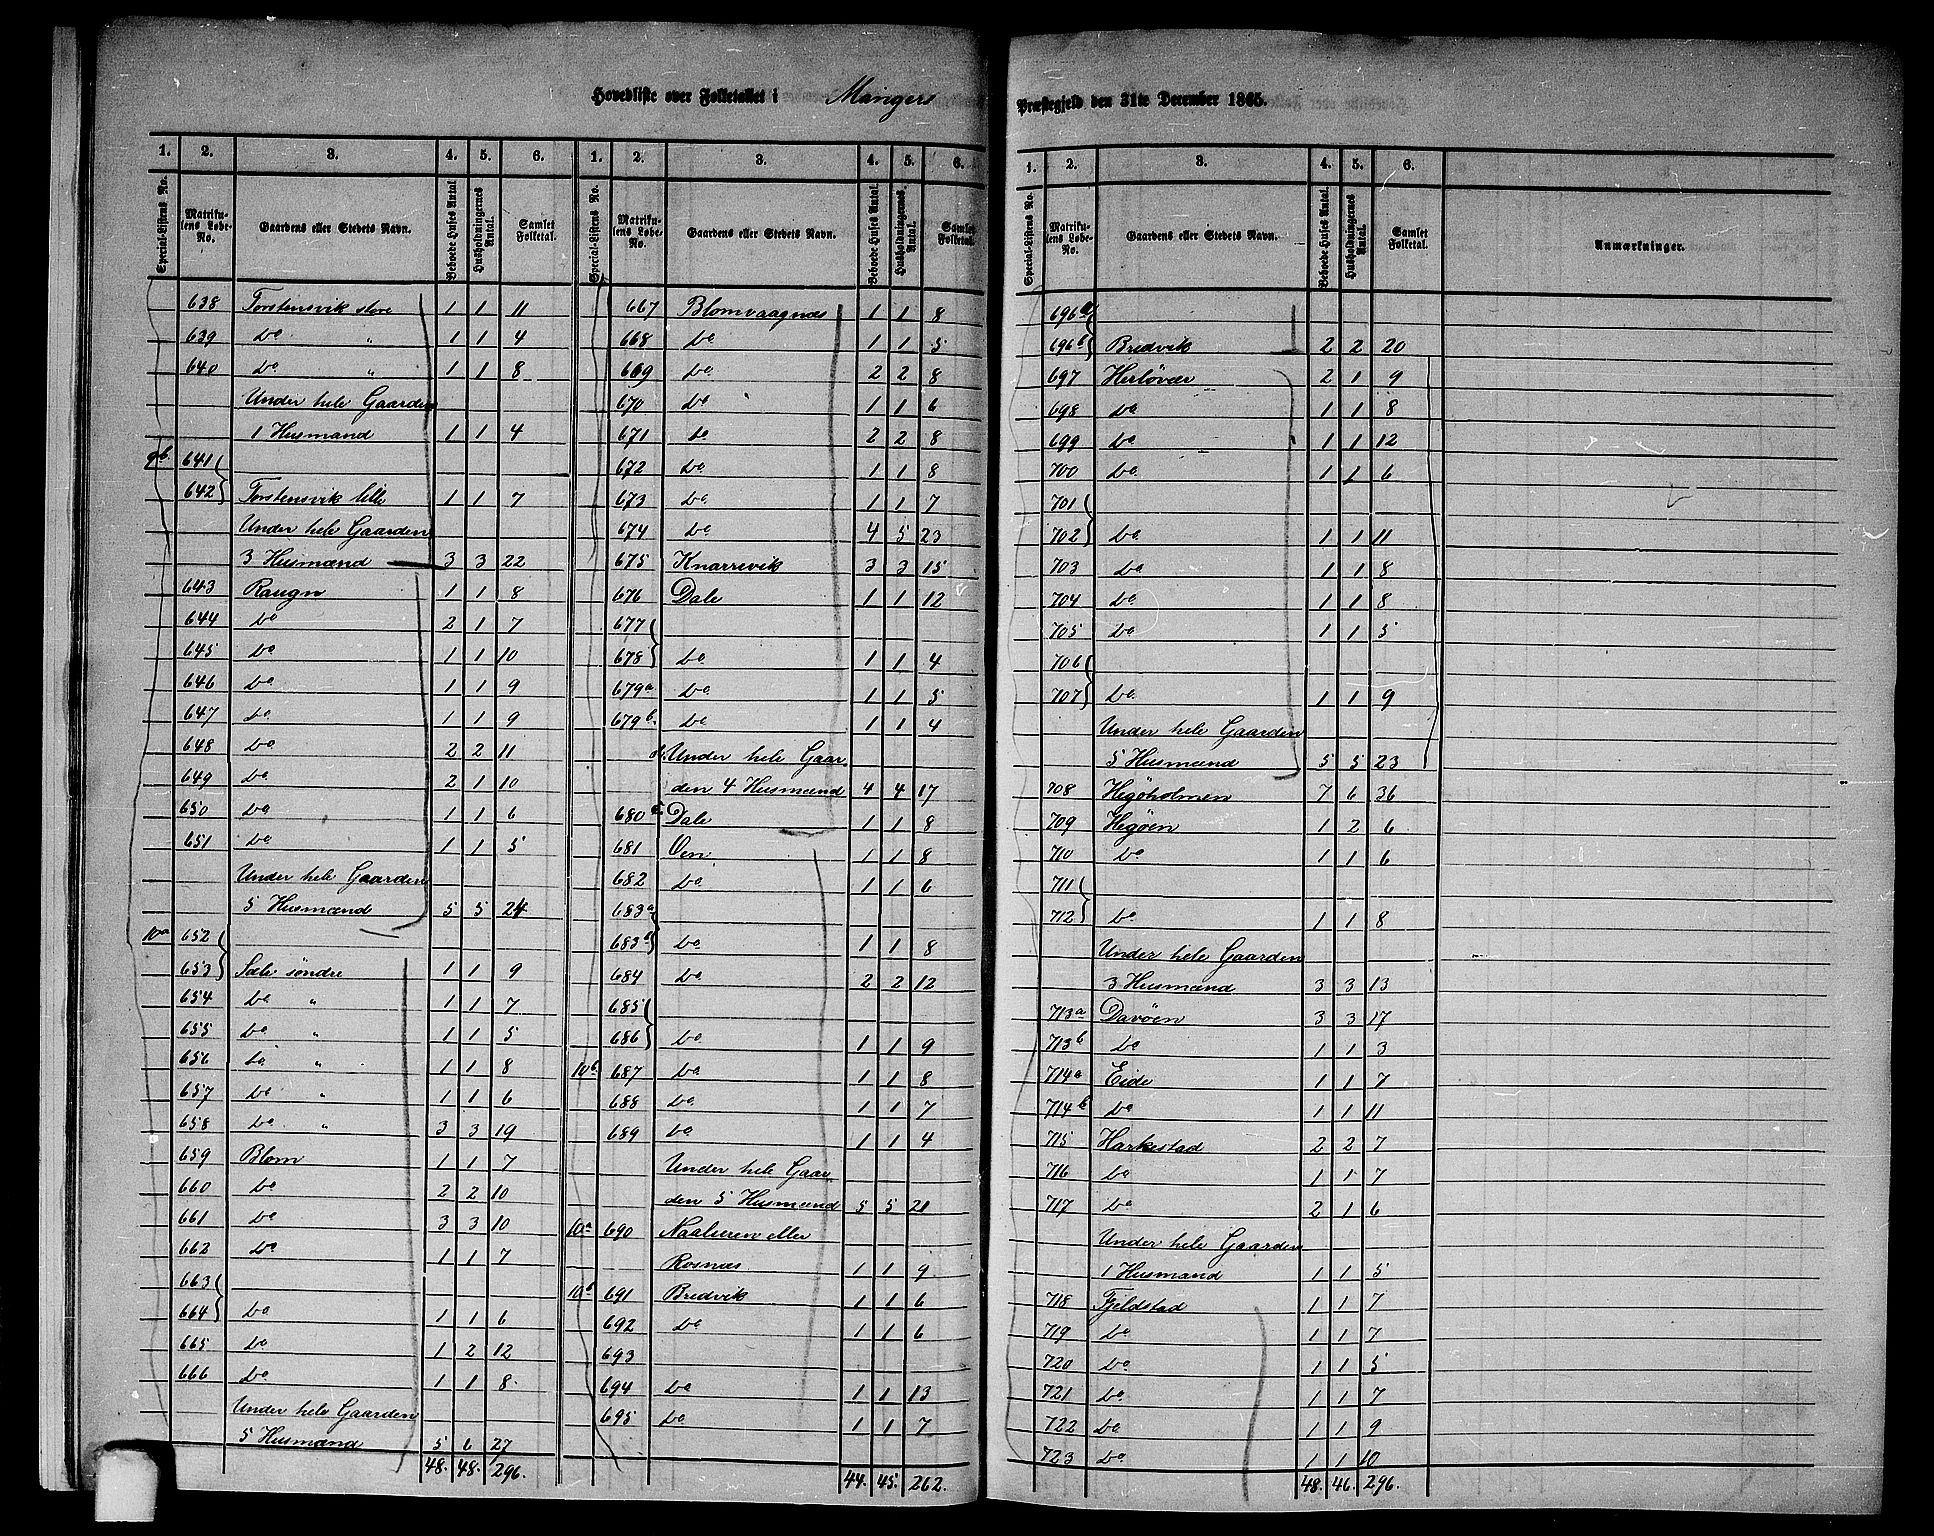 Hovedliste over Folketallet i Mangers Præstegjeld den 31te December 1865.
1. 2. 3. 4. 5. 6.
Special-Listens No. Matrikulens Løbe-No. Gaardens eller Stedets Navn. Beboede Huses Antal. Husholdningernes Antal. Samlet Folketal.
638 Torstensvik store 1 1 11
639 Do " 1 1 4
640 Do " 1 1 8
Under hele Gaarden
1 Husmand 1 1 4
9b 641
642 Torstensvik lille 1 1 7
Under hele Gaarden
3 Husmænd 3 3 22
643 Raugn 1 1 8
644 Do 2 1 7
645 Do 1 1 10
646 Do 1 1 9
647 Do 1 1 9
648 Do 2 2 11
649 Do 2 1 10
650 Do 1 1 6
651 Do 1 1 5
Under hele Gaarden
5 Husmænd 5 5 24
10a 652
653 Sæle søndre 1 1 9
654 Do " 1 1 7
655 Do " 1 1 5
656 Do " 1 1 8
657 Do " 1 1 6
658 Do " 3 3 19
659 Blom 1 1 7
660 Do 2 2 10
661 Do 3 3 10
662 Do 1 1 7
663
664 Do 1 1 6
665 Do 1 2 12
666 Do 1 1 8
Under hele Gaarden
5 Husmænd 5 6 27
48. 48. 296.
1. 2. 3. 4. 5. 6.
Special-Listens No. Matrikulens Løbe-No. Gaardens eller Stedets Navn. Beboede Huses Antal. Husholdningernes Antal. Samlet Folketal.
667 Blomvaagnæs 1 1 8
668 Do 1 1 5
669 Do 2 2 8
670 Do 1 1 6
671 Do 2 2 8
672 Do 1 1 8
673 Do 1 1 7
674 Do 4 5 23
675 Knarrevik 3 3 15
676 Dale 1 1 12
677
678 Do 1 1 4
679a Do 1 1 5
679b Do 1 1 4
Under hele Gaar
den 4 Husmænd 4 4 17
680a Dale 1 1 8
681 Oen 1 1 8
682 Do 1 1 6
683a
683b Do 1 1 8
684 Do 2 2 12
685
686 Do 1 1 9
10b 687 Do 1 1 8
688 Do 1 1 7
689 Do 1 1 4
Under hele Gaar
den 5 Husmænd 5 5 21
10a 690 Naaleren eller
Rosnæs 1 1 9
10b 691 Bredvik 1 1 6
692 Do 1 1 6
693
694 Do 1 1 13
695 Do 1 1 7
44. 45. 262.
1. 2. 3. 4. 5. 6. 7.
Special-Listens No. Matrikulens Løbe-No. Gaardens eller Stedets Navn. Beboede Huses Antal. Husholdningernes Antal. Samlet Folketal. Anmærkninger.
696a
696b Bredvik 2 2 20
697 Herløvær 2 1 9
698 Do 1 1 8
699 Do 1 1 12
700 Do 1 1 6
701
702 Do 1 1 11
703 Do 1 1 8
704 Do 1 1 8
705 Do 1 1 5
706
707 Do 1 1 9
Under hele Gaarden
5 Husmænd 5 5 23
708 Hegøholmen 7 6 36
709 Hegøen 1 2 6
710 Do 1 1 6
711
712 Do 1 1 8
Under hele Gaarden
3 Husmænd 3 3 13
713a Davøen 3 3 17
713b Do 1 1 3
714a Eide 1 1 7
714b Do 1 1 11
715 Harkestad 2 2 7
716 Do 1 1 7
717 Do 2 1 6
Under hele Gaarden
1 Husmand 1 1 5
718 Fjeldstad 1 1 7
719 Do 1 1 7
720 Do 1 1 5
721 Do 1 1 7
722 Do 1 1 9
723 Do 1 1 10
48. 46. 296.